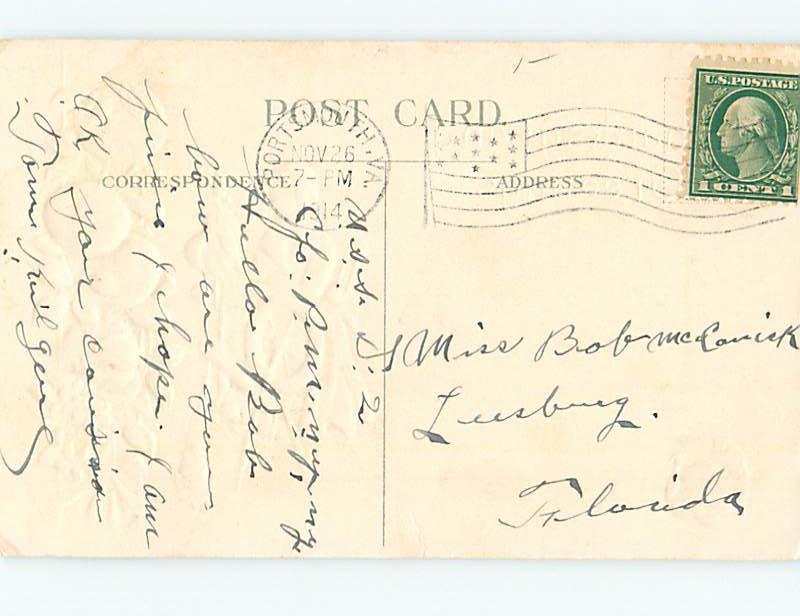 POST CARD.
CORRESPONDENCE
ADDRESS
U.S. POSTAGE
1 CENT 1
PORTSMOUTH, VA.
NOV 26
7-PM
1914
U.S.S.
C/o. P.M. N.Y. N.Y.
Hello Bob
how are you
fine I hope. I am
OK your cousin
Tom
Miss Bob
Leesburg.
Florida